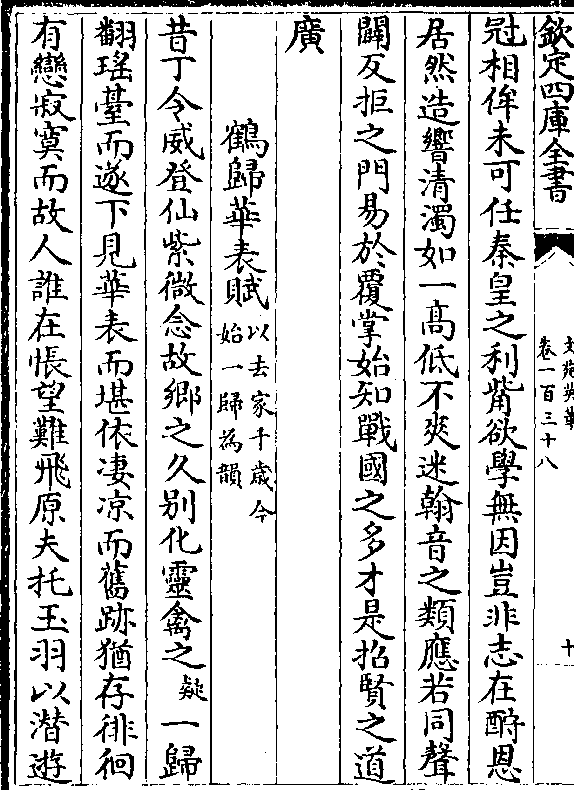 欽定四庫全書
文苑英華
卷一百三十八
十
冠相侔未可任秦皇之利觜欲學無因豈非志在酧恩
居然造響清濁如一髙低不爽迷翰音之類應若同聲
闢反拒之門易於覆掌始知戰國之多才是招賢之道
廣
鶴歸華表賦以去家千歲今始一歸為韻
昔丁令威登仙紫微念故鄉之久別化靈禽之疑一歸
翻瑤臺而遂下見華表而堪依凄凉而舊跡猶存徘徊
有戀寂寞而故人誰在悵望難飛原夫托玉羽以潜遊